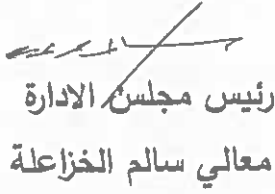 رئيس مجلس الادارة
معالي سالم الخزاعلة